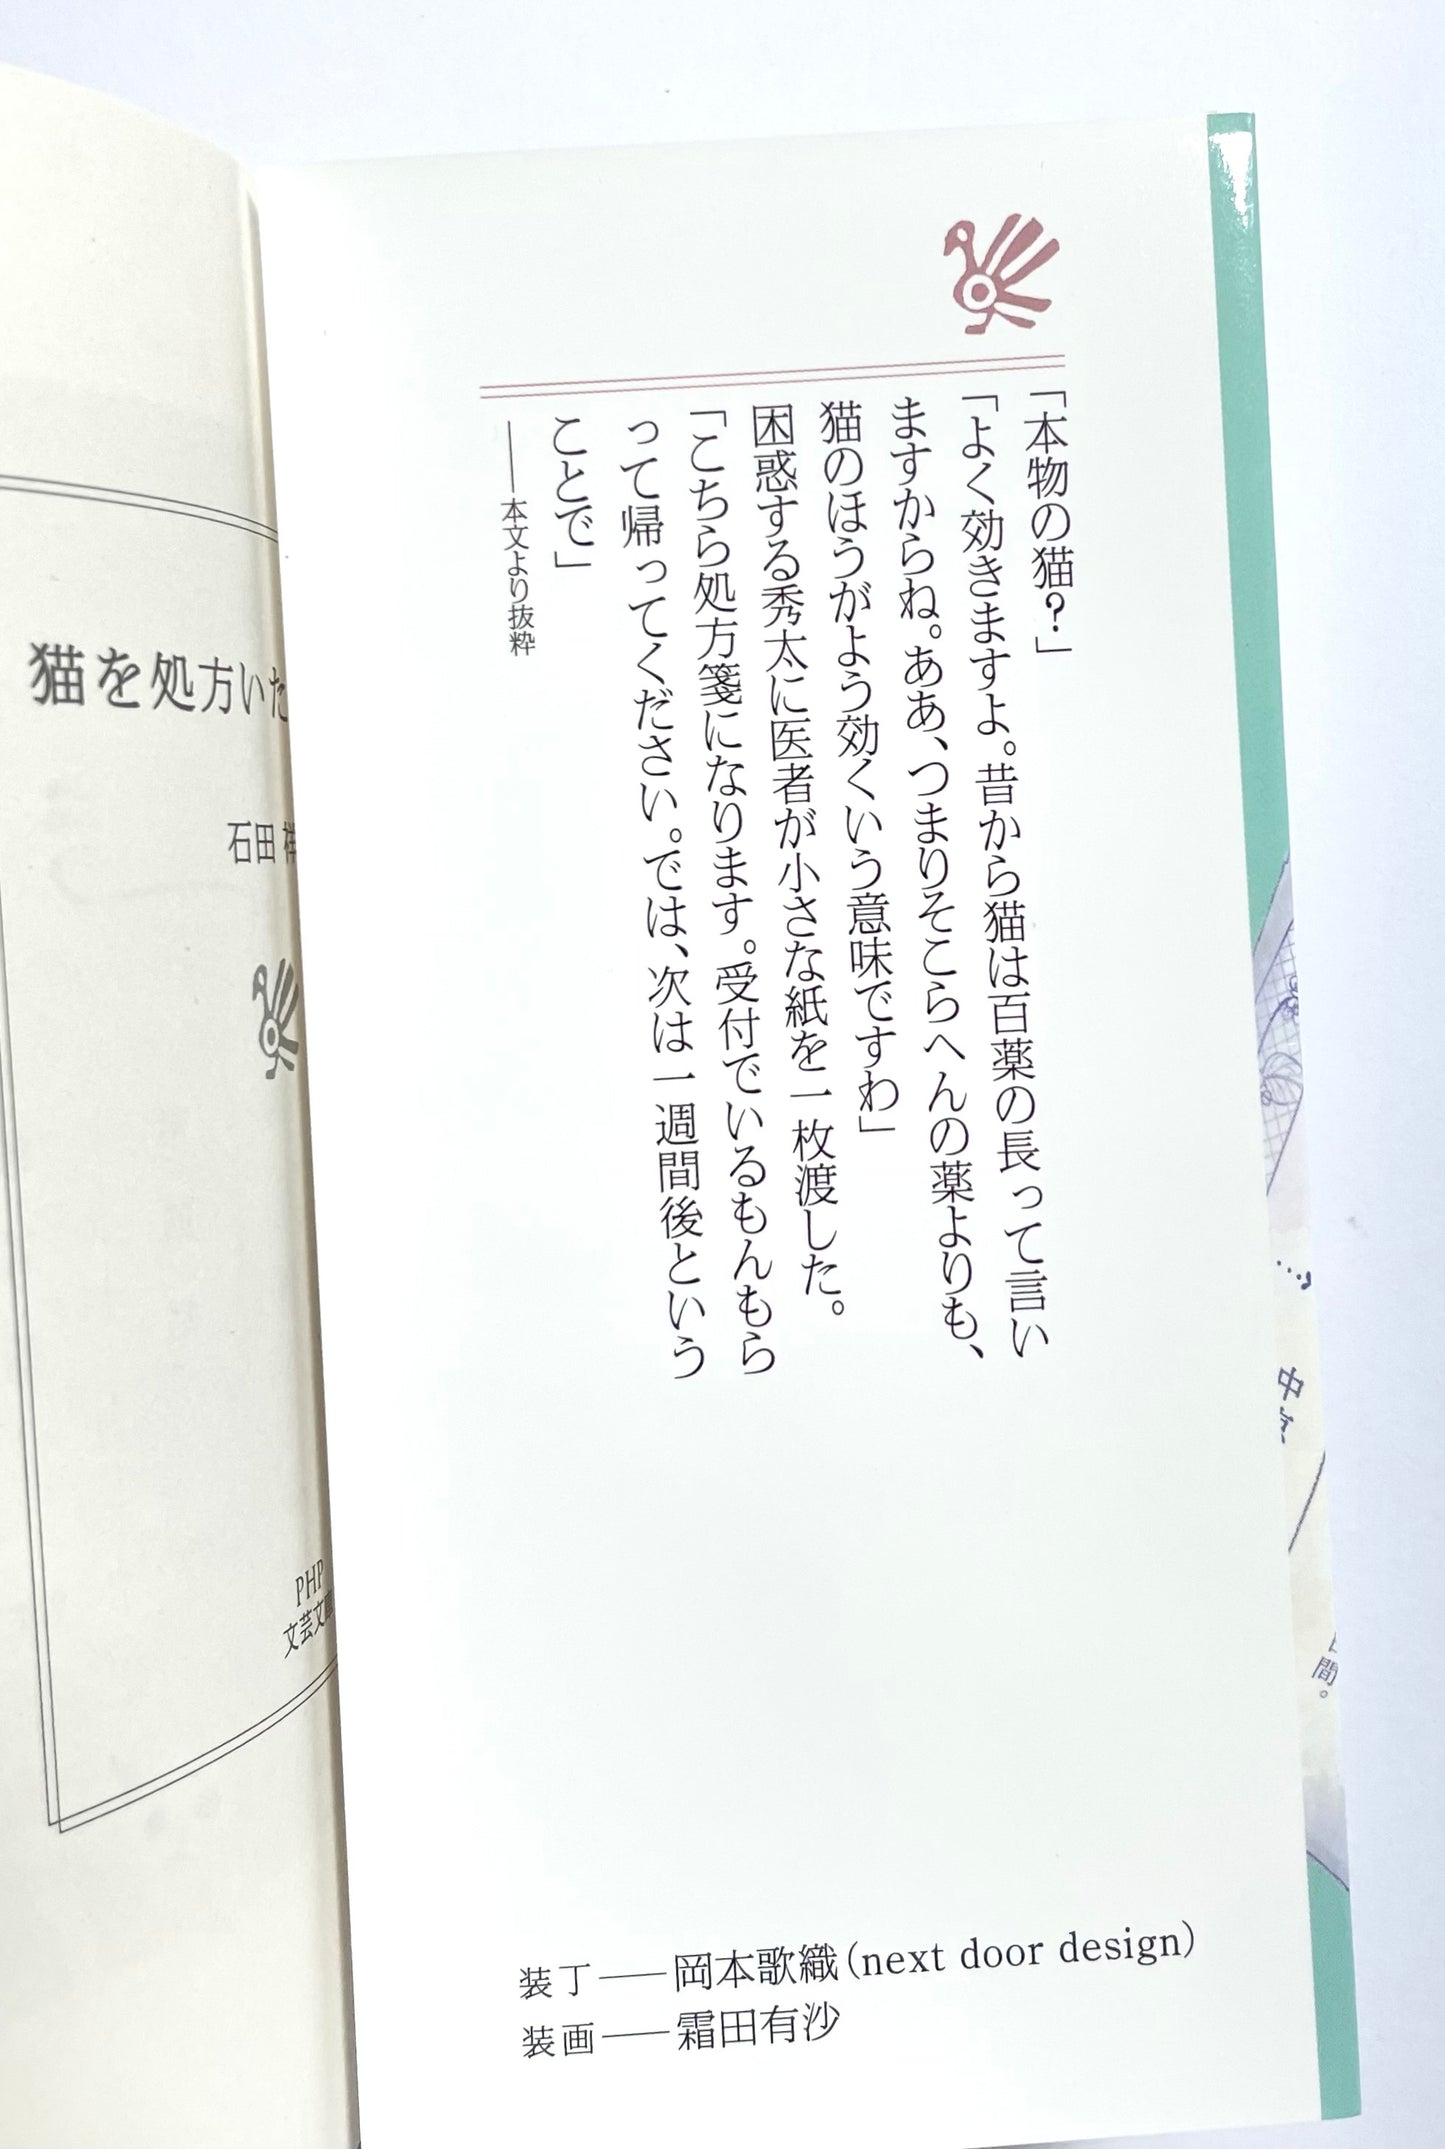 「本物の猫?」
「よく効きますよ。昔から猫は百薬の長って言い
ますからね。ああ、つまりそこらへんの薬よりも、
猫のほうがよう効くいう意味ですわ」
困惑する秀太に医者が小さな紙を一枚渡した。
「こちら処方箋になります。受付でいるもんもら
って帰ってください。では、次は一週間後という
ことで」
――本文より抜粋
装丁――岡本歌織(next door design)
装画――霜田有沙
猫を処方いた
石田 祥
PHP
文芸文庫
…
中京
間。